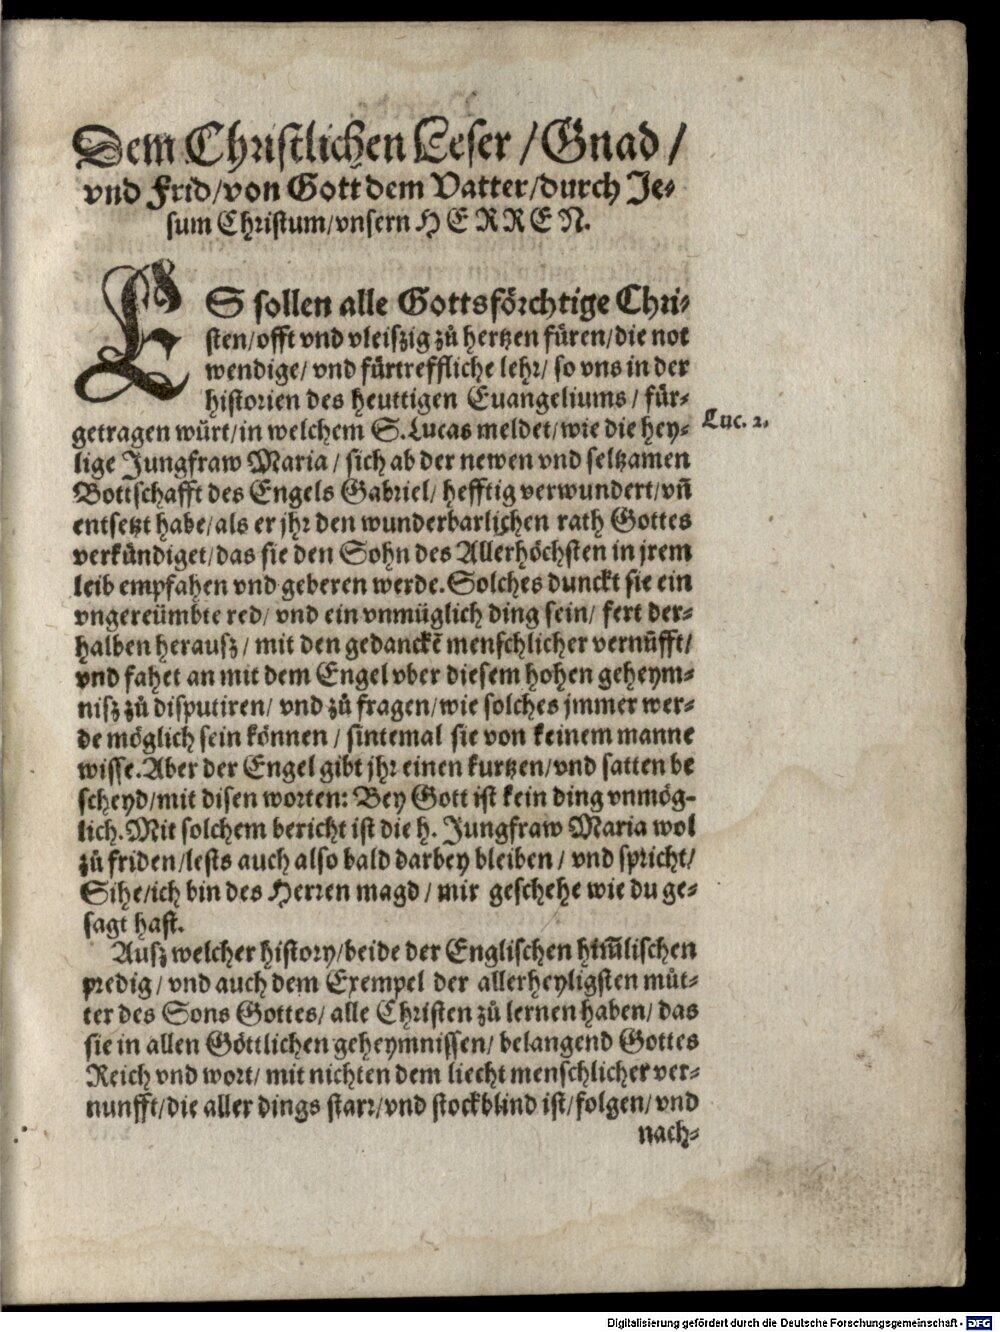 Dem Christlichen Leser / Gnad /
vnd Frid/von Gott dem Vatter/durch Je⸗
sum Christum/vnsern HERREN.
ES sollen alle Gottsförchtige Chri⸗
sten/offt vnd vleiszig zů hertzen füren/die not
wendige/ vnd fürtreffliche lehr/ so vns in der
historien des heuttigen Euangeliums / für⸗
getragen würt/in welchem S.Lucas meldet/wie die hey⸗
Luc. 2.
lige Jungfraw Maria / sich ab der newen vnd seltzamen
Bottschafft des Engels Gabriel/ hefftig verwundert/vñ
entsetzt habe/als er jhr den wunderbarlichen rath Gottes
verkündiget/das sie den Sohn des Allerhöchsten in jrem
leib empfahen vnd geberen werde.Solches dunckt sie ein
vngereümbte red/ vnd ein vnmüglich ding sein/ fert der⸗
halben herausz / mit den gedanckē menschlicher vernůfft/
vnd fahet an mit dem Engel vber diesem hohen geheym⸗
nisz zů disputiren/ vnd zů fragen/wie solches jmmer wer⸗
de möglich sein können / sintemal sie von keinem manne
wisse.Aber der Engel gibt jhr einen kurtzen/vnd satten be
scheyd/mit disen worten: Bey Gott ist kein ding vnmög-
lich.Mit solchem bericht ist die h. Jungfraw Maria wol
zů friden/lests auch also bald darbey bleiben / vnd spricht/
Sihe/ich bin des Herren magd / mir geschehe wie du ge⸗
sagt hast.
Ausz welcher history/beide der Englischen him̃lischen
predig / vnd auch dem Exempel der allerheyligsten můt⸗
ter des Sons Gottes/ alle Christen zů lernen haben/ das
sie in allen Göttlichen geheymnissen/ belangend Gottes
Reich vnd wort/ mit nichten dem liecht menschlicher ver⸗
nunfft/die aller dings starr/vnd stockblind ist/folgen/ vnd
nach⸗
Digitalisierung gefördert durch die Deutsche Forschungsgemeinschaft - DFG